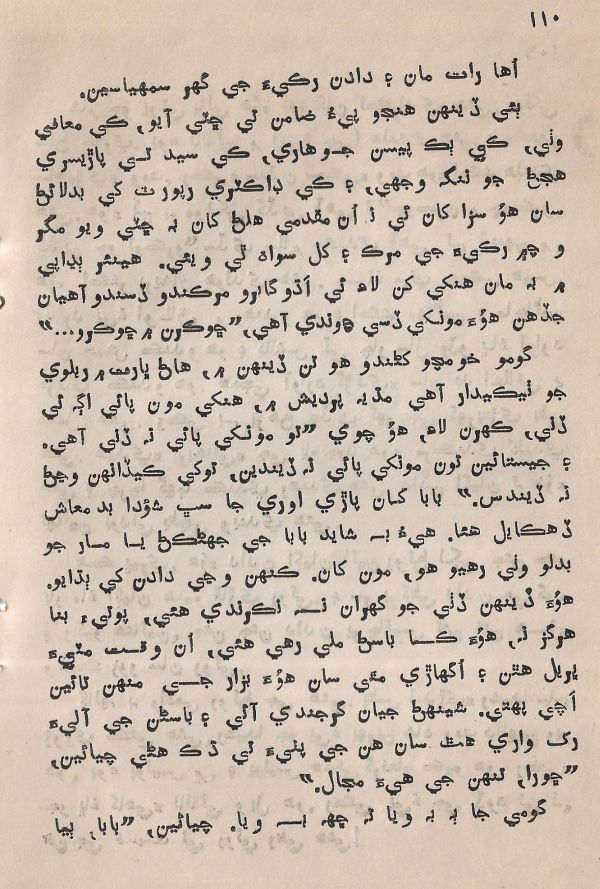 ١١٠
اُها رات مان ۽ دادن رکيءَ جي گهر سمهياسين.
ٻئي ڏينهن هنجو پيءُ ضامن ٿي ڇٽي آيو، ڪي معافي
وٺي، ڪي ٻڪ پيسن جـوهاري، ڪي سيد ٿـي پاڙيسري
هجڻ جو ننگ وجهي، ۽ ڪي ڊاڪٽري رپورٽ کي بدلائڻ
سان هوُ سزا کان ٿي نہ اُن مقدمي هلڻ کان بہ ڇٽي ويو مگر
وچ ۾ رکيءَ جي مرڪ ۽ کل سواہ ٿي ويئي. هينئر ٻڍاپي
۾ بہ مان هنکي کن لاءِ ئي اُڏوگابرو مرڪندو ڏسندو آهيان
جڏهن هوُءَ مونکي ڏسي چوندي آهي، ”ڇوڪرن ۾ ڇوڪرو...“
گومو خومچو کڻندو هو تن ڏينهن ۾، هاڻ ڀارت ۾ ريلوي
جو ٺيڪيدار آهي مڌيہ پرديش ۾، هنکي مون پائي اڳہ ٿي
ڏني، ڪهرن لاءِ، هوُ چوي ”تو مونکي پائي نہ ڏني آهي.
۽ جيستائين تون مونکي پائي نہ ڏيندين، توکي ڪيڏانهن وڃڻ
نہ ڏيندس.“ بابا کان پاڙي اوري جا سڀ شوُدا بدمعاش
ڏهڪايل هئا. هيءُ بـہ شايد بابا جي جهڻڪڻ يـا مـار جو
بدلو وٺي رهيو هو، مون کان. ڪنهن وڃي دادن کي ٻڌايو.
هوُءَ ڏينهن ڏٺي جو گهران نـہ نڪرندي هئي، پوتيءَ بنا
هرگز نہ، هوُءَ ڪـا باسڻ ملي رهي هئي، اُن وقت مٽيءَ
ڀريل هٿن ۽ اُگهاڙي مٿي سان هوُءَ بزار جـي منهن تائين
اَچي پهتي. شينهڻ جيان گرجندي آئي ۽ باسڻن جي آليءَ
رک واري هٿ سان هن جي پٺيءَ تي ڌڪ هڻي چيائين،
”ڇورا، تنهن جي هيءَ مجال.“
گومي جا ٻہ بہ ويا تہ ڇهہ بـہ ويا. چيائين، ”بابا، ٻيا